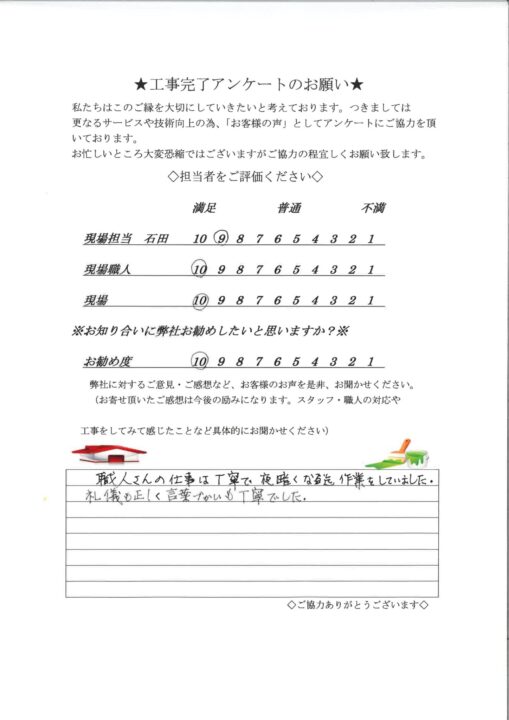 ★工事完了アンケートのお願い★
私たちはこのご縁を大切にしていきたいと考えております。つきましては
更なるサービスや技術向上の為、「お客様の声」としてアンケートにご協力を頂
いております。
お忙しいところ大変恐縮ではございますがご協力の程宜しくお願い致します。
◇担当者をご評価ください◇
満足 普通 不満
現場担当 石田 10 9 8 7 6 5 4 3 2 1
現場職人 10 9 8 7 6 5 4 3 2 1
現場 10 9 8 7 6 5 4 3 2 1
※お知り合いに弊社お勧めしたいと思いますか？※
お勧め度 10 9 8 7 6 5 4 3 2 1
弊社に対するご意見・ご感想など、お客様のお声を是非、お聞かせください。
（お寄せ頂いたご感想は今後の励みになります。スタッフ・職人の対応や
工事をしてみて感じたことなど具体的にお聞かせください）
職人さんの仕事は丁寧で、夜暗くなる迄、作業をしていました。
礼儀も正しく言葉づかいも丁寧でした。
◇ご協力ありがとうございます◇